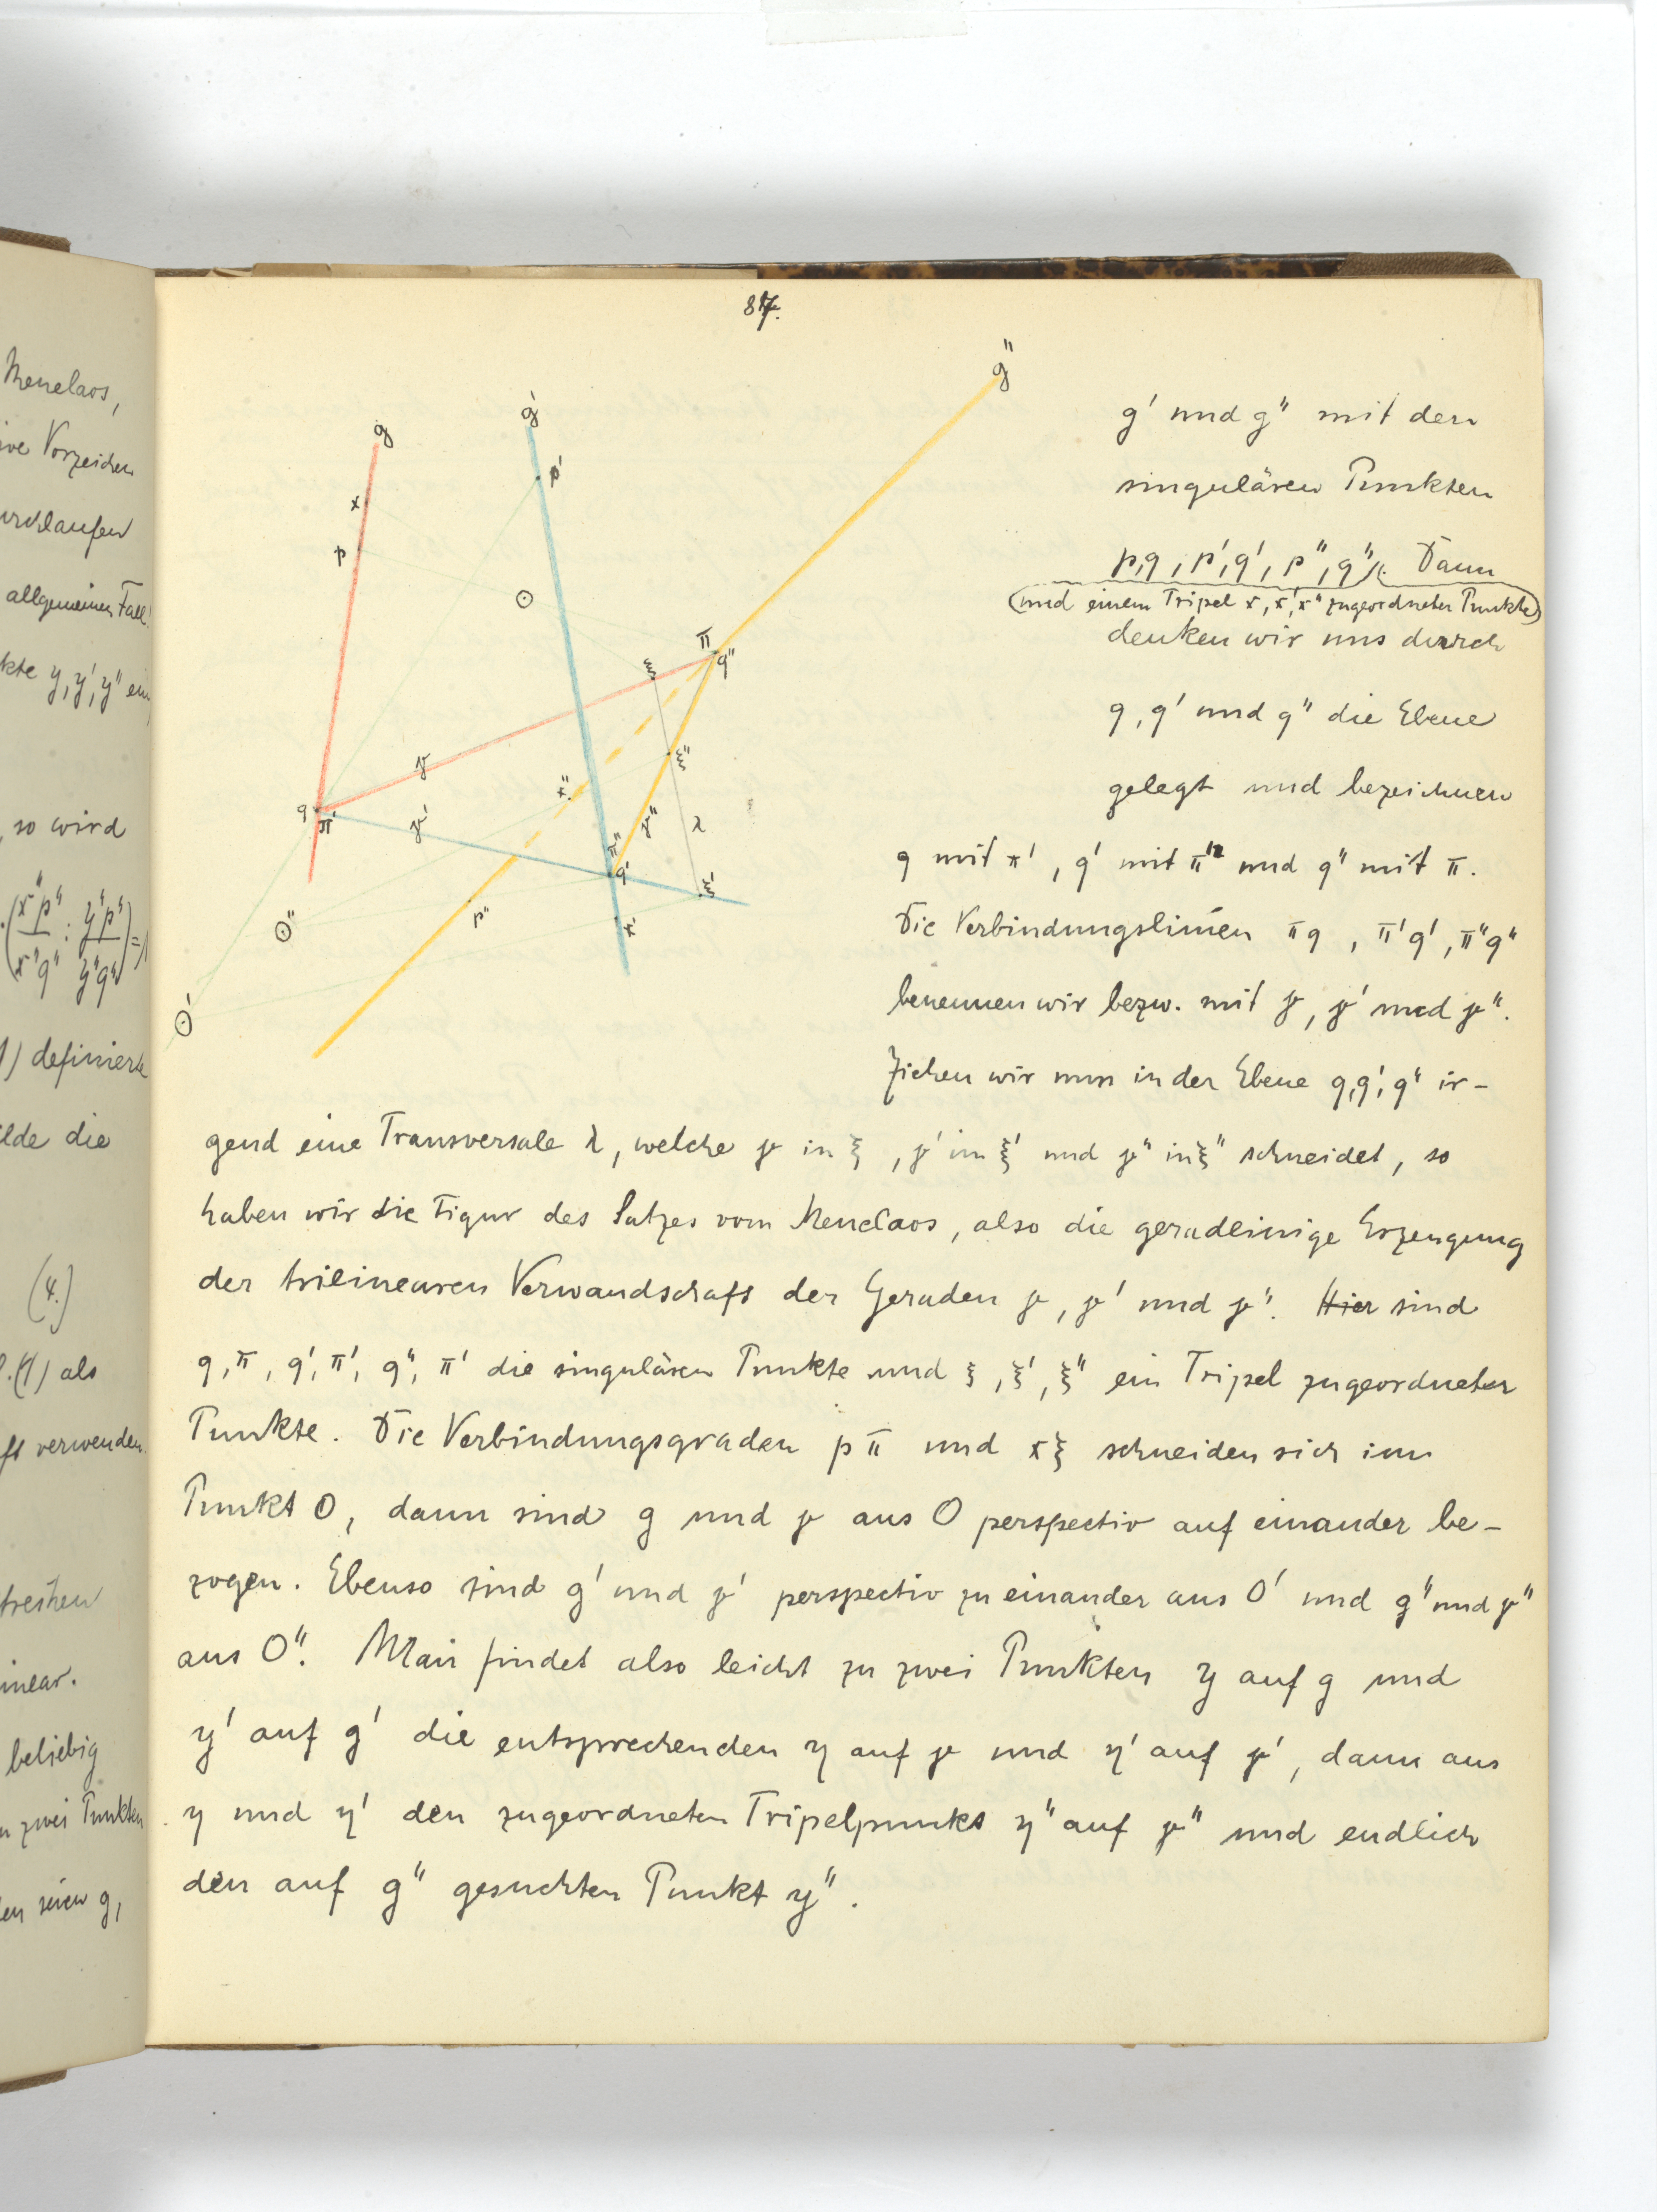 Menelaos,
Vorzeichen
allgemeinen Fall.
y, y', y"
so wird
(x"p" : y"p") =
x"q" y"q"
definierte
die
(4.)
als
verwenden.
beliebig
zwei Punkten
seien g,
87.
g g' g"
x p p' O
ξ π q"
γ x" ξ"
q π' γ' π" γ" λ
q' ξ'
O" p" x'
O'
g' und g" mit den
singulären Punkten
p,q, p',q', p",q". Dann
(und einem Tripel x, x', x" zugeordneter Punkte)
denken wir uns durch
q, q' und q" die Ebene
gelegt und bezeichnen
q mit π', q' mit π" und q" mit π.
Die Verbindungslinien πq, π'q', π"q"
benennen wir bezw. mit γ, γ' und γ".
Ziehen wir nun in der Ebene q,q',q" ir-
gend eine Transversale λ, welche γ in ξ, γ' in ξ' und γ" in ξ" schneidet, so
haben wir die Figur des Satzes vom Menelaos, also die geradlinige Erzeugung
der trilinearen Verwandschaft der Geraden γ, γ' und γ". Hier sind
q,π, q',π', q",π' die singulären Punkte und ξ, ξ', ξ" ein Tripel zugeordneter
Punkte. Die Verbindungsgraden pπ und xξ schneiden sich im
Punkt O, dann sind g und γ aus O perspectiv auf einander be-
zogen. Ebenso sind g' und γ' perspectiv zu einander aus O' und g" und γ"
aus O". Man findet also leicht zu zwei Punkten y auf g und
y' auf g' die entsprechenden η auf γ und η' auf γ', dann aus
η und η' den zugeordneten Tripelpunkt η" auf γ" und endlich
den auf g" gesuchten Punkt y".